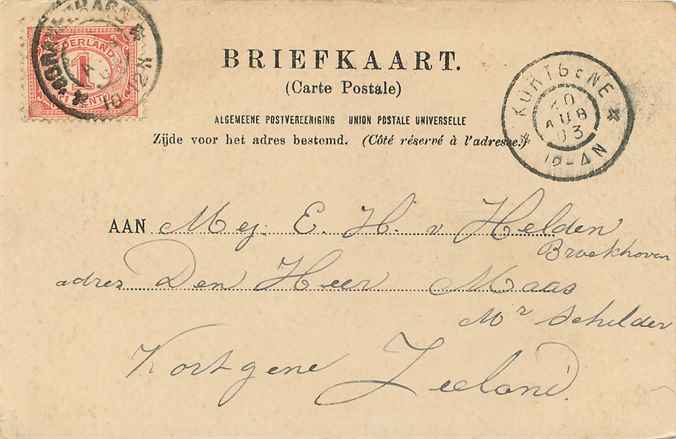 NEDERLAND
1
CENT
'S-GRAVENHAGE
BRIEFKAART.
(Carte Postale)
ALGEMEENE POSTVEREENIGING UNION POSTALE UNIVERSELLE
Zijde voor het adres bestemd. (Côté réservé à l'adresse.)
KORTGENE
20
AUG
03
10-4N
AAN Mej. E. H. v Helden
Broekhoven
adres Den Heer Maas
Mr Schilder
Kortgene Zeeland.